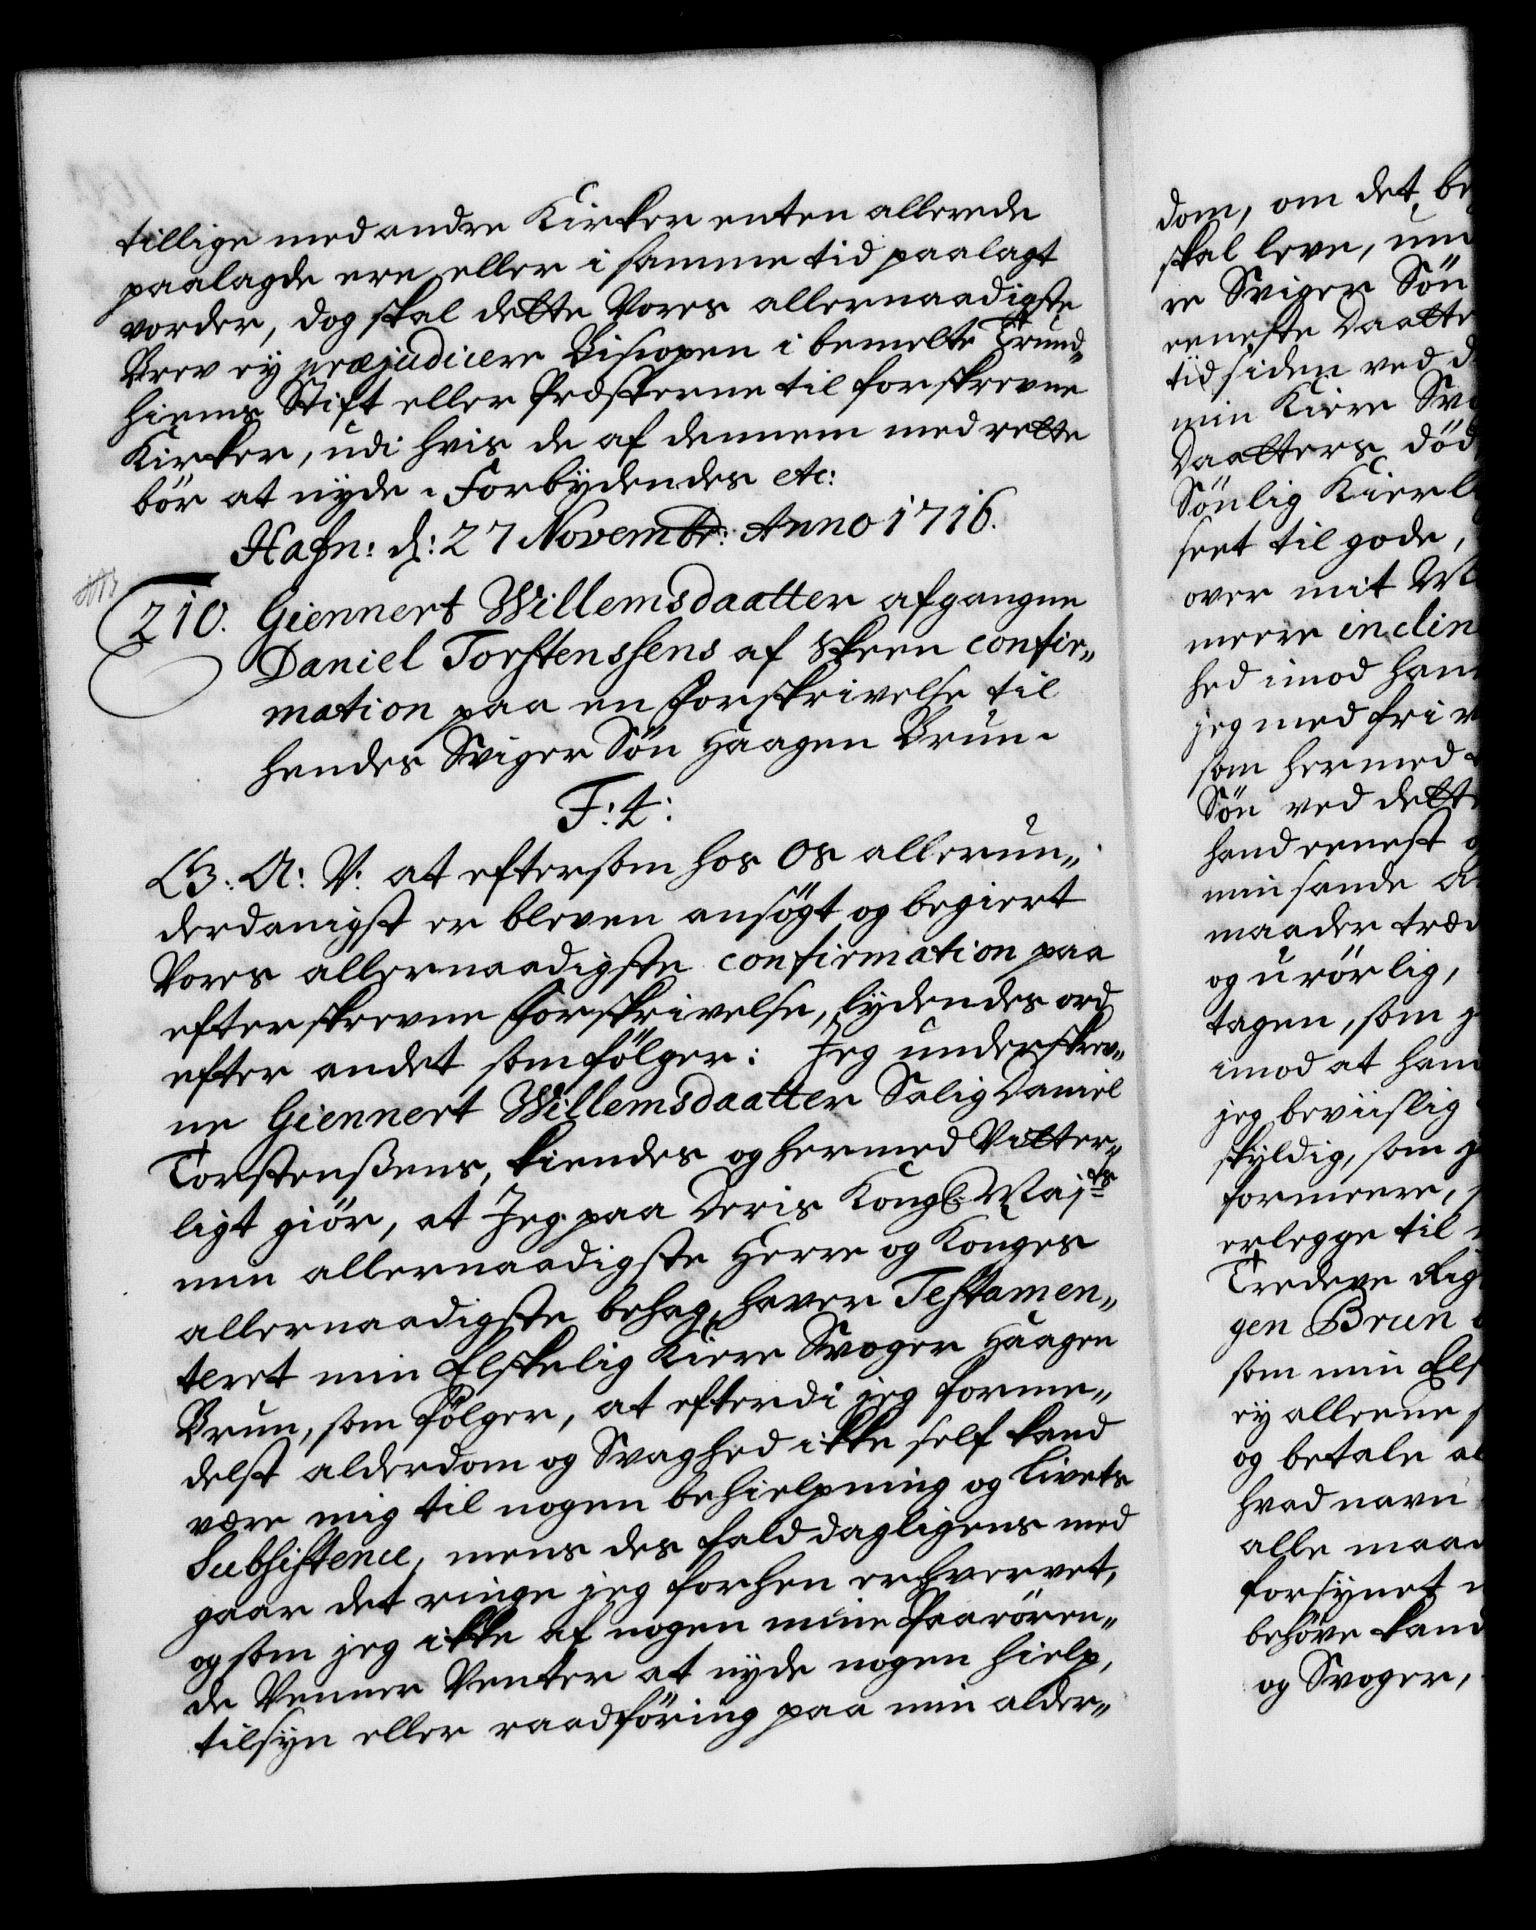 tillige med andre Kirker enten allerede
paalagde ere, eller i samme tid paalagt
vorder, dog skal dette Vores allernaadigste
Brev ey præjudicere Bispen i bemelte Trund-
hiems Stift eller Prosterne til forskrevne
Kirker, udi hvis de af dennem med rette
bör at nyde. Forbydendes etc:
Hafn: d: 27 Novembr: Anno 1716.
210. Giennert Willemsdaatter afgangne
Daniel Torstenssens af Skeen confir„
mation paa en Forskrivelse til
hendes Sviger Sön Haagen Brun.
F: 4:
G: A: V: at eftersom hos Os allerun„
derdanigst er bleven ansögt og begiert
Vores allernaadigste confirmation paa
efterskrevne Forskrivelse, lydendes ord
efter andet som fölger: Jeg underskrev„
ne Giennert Willemsdaatter Salig Daniel
Torstenßens, kiendes og hermed Vitter„
ligt giör, at Jeg paa Deris Kongl: Majts
min allernaadigste Herre og Konges
allernaadigste behag, haver Testamen„
teret min Elskelig Kiere Svoger Haagen
Brun, som fölger, at efterdi jeg forme„
delst alderdom og Svaghed ikke self kand
være mig til nogen behielpning og Livets
Subsistence, mens des fald dagligens med
gaar det ringe jeg forhen erhvervet,
og som jeg ikke af nogen mine Paarören„
de Venner Venter at nyde nogen hielp,
tilsyn eller raadföring paa min alder„
dom, om det be
skal leve, und
re Sviger Sön
eeneste Daatte
tid siden ved d
min Kiere Sv
Daatters död
Sönlig Kierl
seet til gode,
over mit
meere inclin
hed imod han
jeg med fri v
som hermed
Sön ved dette
hand eenest o
min sande A
maader træd
og urörlig,
tagen, som j
imod at han
jeg beviislig
skyldig, som j
formeere,
erlegge til
Tredeve Rig
gen Brun
som min Els
ey alleene
og betale al
hvad navn
alle maad
forsynet
behöve kand
og Svoger,